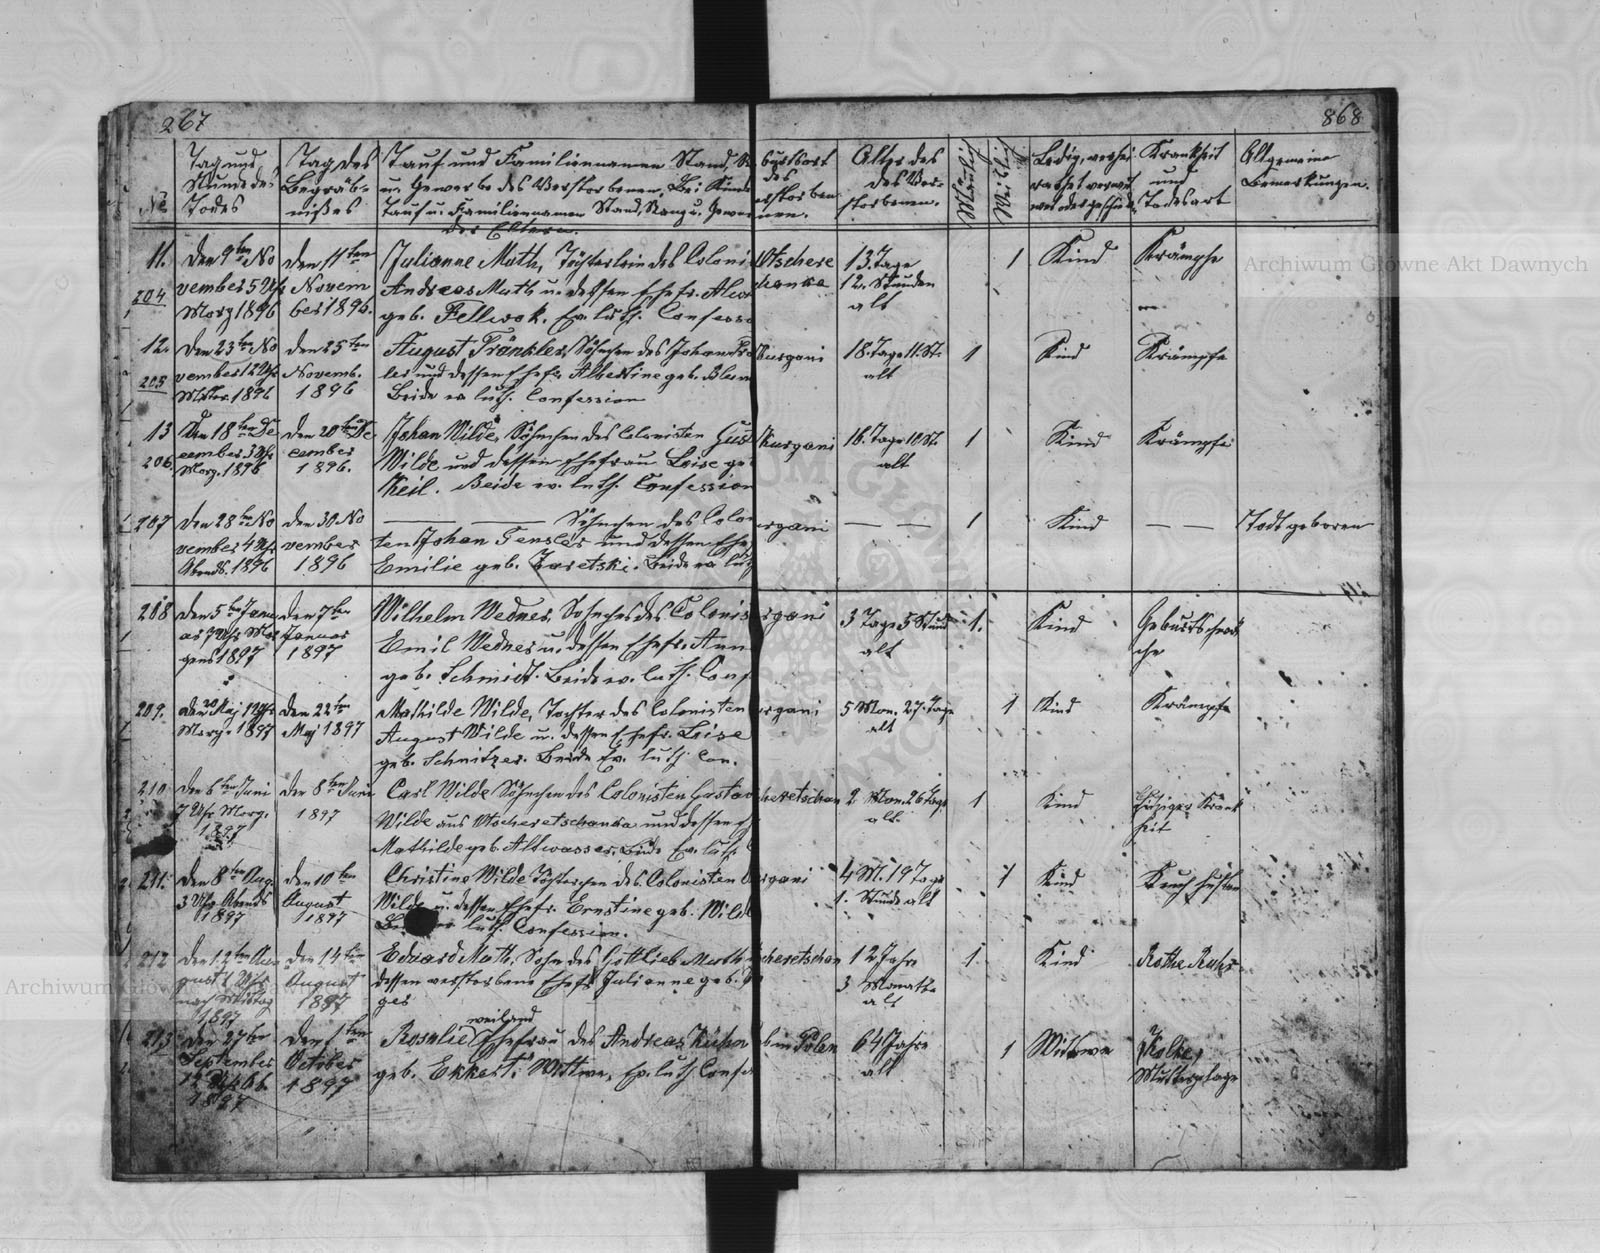 267
868
№
Tag und
Stunde des
Todes
Tag des
Begräb-
nißes
Tauf und Familiennamen Stand,
u. Gewerbe des Verstorbenen. Bei Kinde
Tauf u. Familiennamen Stand, Rang u. Gewer
der Eltern.
burtsort
des
erstorben
nen.
Alter des
des Ver-
storbenen.
Mänlich
Weiblich
Ledig, verhei
rathet verwit
wet oder geschied.
Krankheit
und
Todesart
Allgemeine
Bemerkungen.
11.
204
den 9ten No
vember 5 Uhr
Morg 1896
den 11ten
Novem
ber 1896.
Julianne Math, Töchterlein des Coloni
Andreas Math u. dessen Ehefr.
geb. Fellwok. Ev. luth. Confess
Otschere
tschanka
13 Tage
12. Stunden
alt
1
Kind
Krämpfe
12.
205
den 23ten No
vember 12 Uhr
Mitter. 1896
den 25ten
Novemb.
1896
August Fränkler, Söhnchen des Johan Fr
ler und dessen Ehefr. Albertine geb. Blum
Beide ev luth. Confession
Kurgani
18. Tage 11. St.
alt
1
Kind
Krämpfe
13
206.
Den 18ten De
cember 3 Uhr
Morg. 1896
den 20ten De
cember
1896.
Johan Wilde, Söhnchen des Colonisten Gust
Wilde und dessen Ehefrau Loise geb
Keil. Beide ev. luth. Confession
Kurgani
16. Tage 10 St.
alt
1
Kind
Krämpfe
207
den 28ten No
vember 4 Uhr
Abends. 1896
den 30 No
vember
1896
Söhnchen des Colon
ten Johan Fensler und dessen Ehe
Emilie geb. Zaretzki. Beide ev luth
urgani
1
Kind
Todt geboren
208
den 5ten Janu
ar 7 Uhr Mor
gens 1897
den 7ten
Januar
1897
Wilhelm Wedner, Söhnchen des Colonis
Emil Wedner u. dessen Ehefr. Ann
geb. Schmidt. Beide ev. luth. Conf
urgani
3 Tage 5 Stund
alt
1.
Kind
Geburtschwä
che
209.
den 20 Maj 1 Uhr
Morge 1897
den 22ten
Maj 1897
Mathilde Wilde, Tochter des Colonisten
August Wilde u. dessen Ehefr. Loise
geb. Schnitzer. Beide Ev. luth. Con.
urgani
5 Mon. 27. Tage
alt
1
Kind
Krämpfe
210
den 6ten Juni
7 Uhr Morg.
1897
den 8ten Juni
1897
Carl Wilde Söhnchen des Colonisten Gustav
Wilde aus Otscheretschanka und dessen
Mathilde geb. Altwasser, Beide Ev. luth.
heretschan
2 Mon. 26 Tage
alt
1
Kind
hitziger Krank
heit
211.
den 8ten Aug.
3 Uhr Abends
1897
den 10ten
August
1897
Christine Wilde Töchterchen des Colonisten
Wilde u. dessen Ehefr. Ernstine geb. Wild
luth. Confession.
urgani
4 M. 19 Tage
1. Stunde alt
1
Kind
Keuchhusten
212
den 12ten Au
gust Uhr
nach Mittag
1897
den 14ten
August
1897
Eduard Math, Sohn des Gottlieb Math
dessen verstorbene Ehefr. Julianne geb.
ger
cheretschan
12 Jahr
3 Monathe
alt
1.
Kind
Rothe Ruhr
213
den 27ten
September
1897
den 1ten
October
1897
weiland
Rosalie Ehefrau des Andreas Kühn
geb. Ekkert. Wittwe, Ev. luth. Confe
in Polen
64 Jahr
alt
1
Wittwe
Mutterplage
Archiwum Główne Akt Dawnych
Archiwum Główne Akt Dawnych